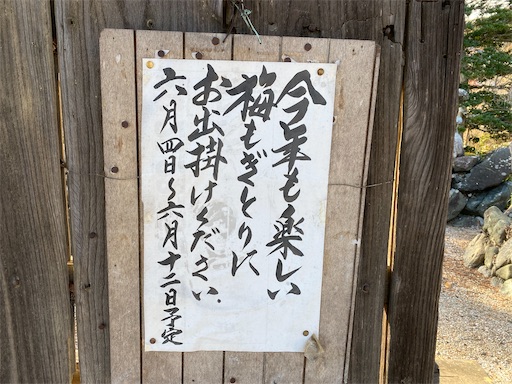 今年も楽しい
梅もぎとりに
お出掛けください.
六月四日〜六月十二日予定